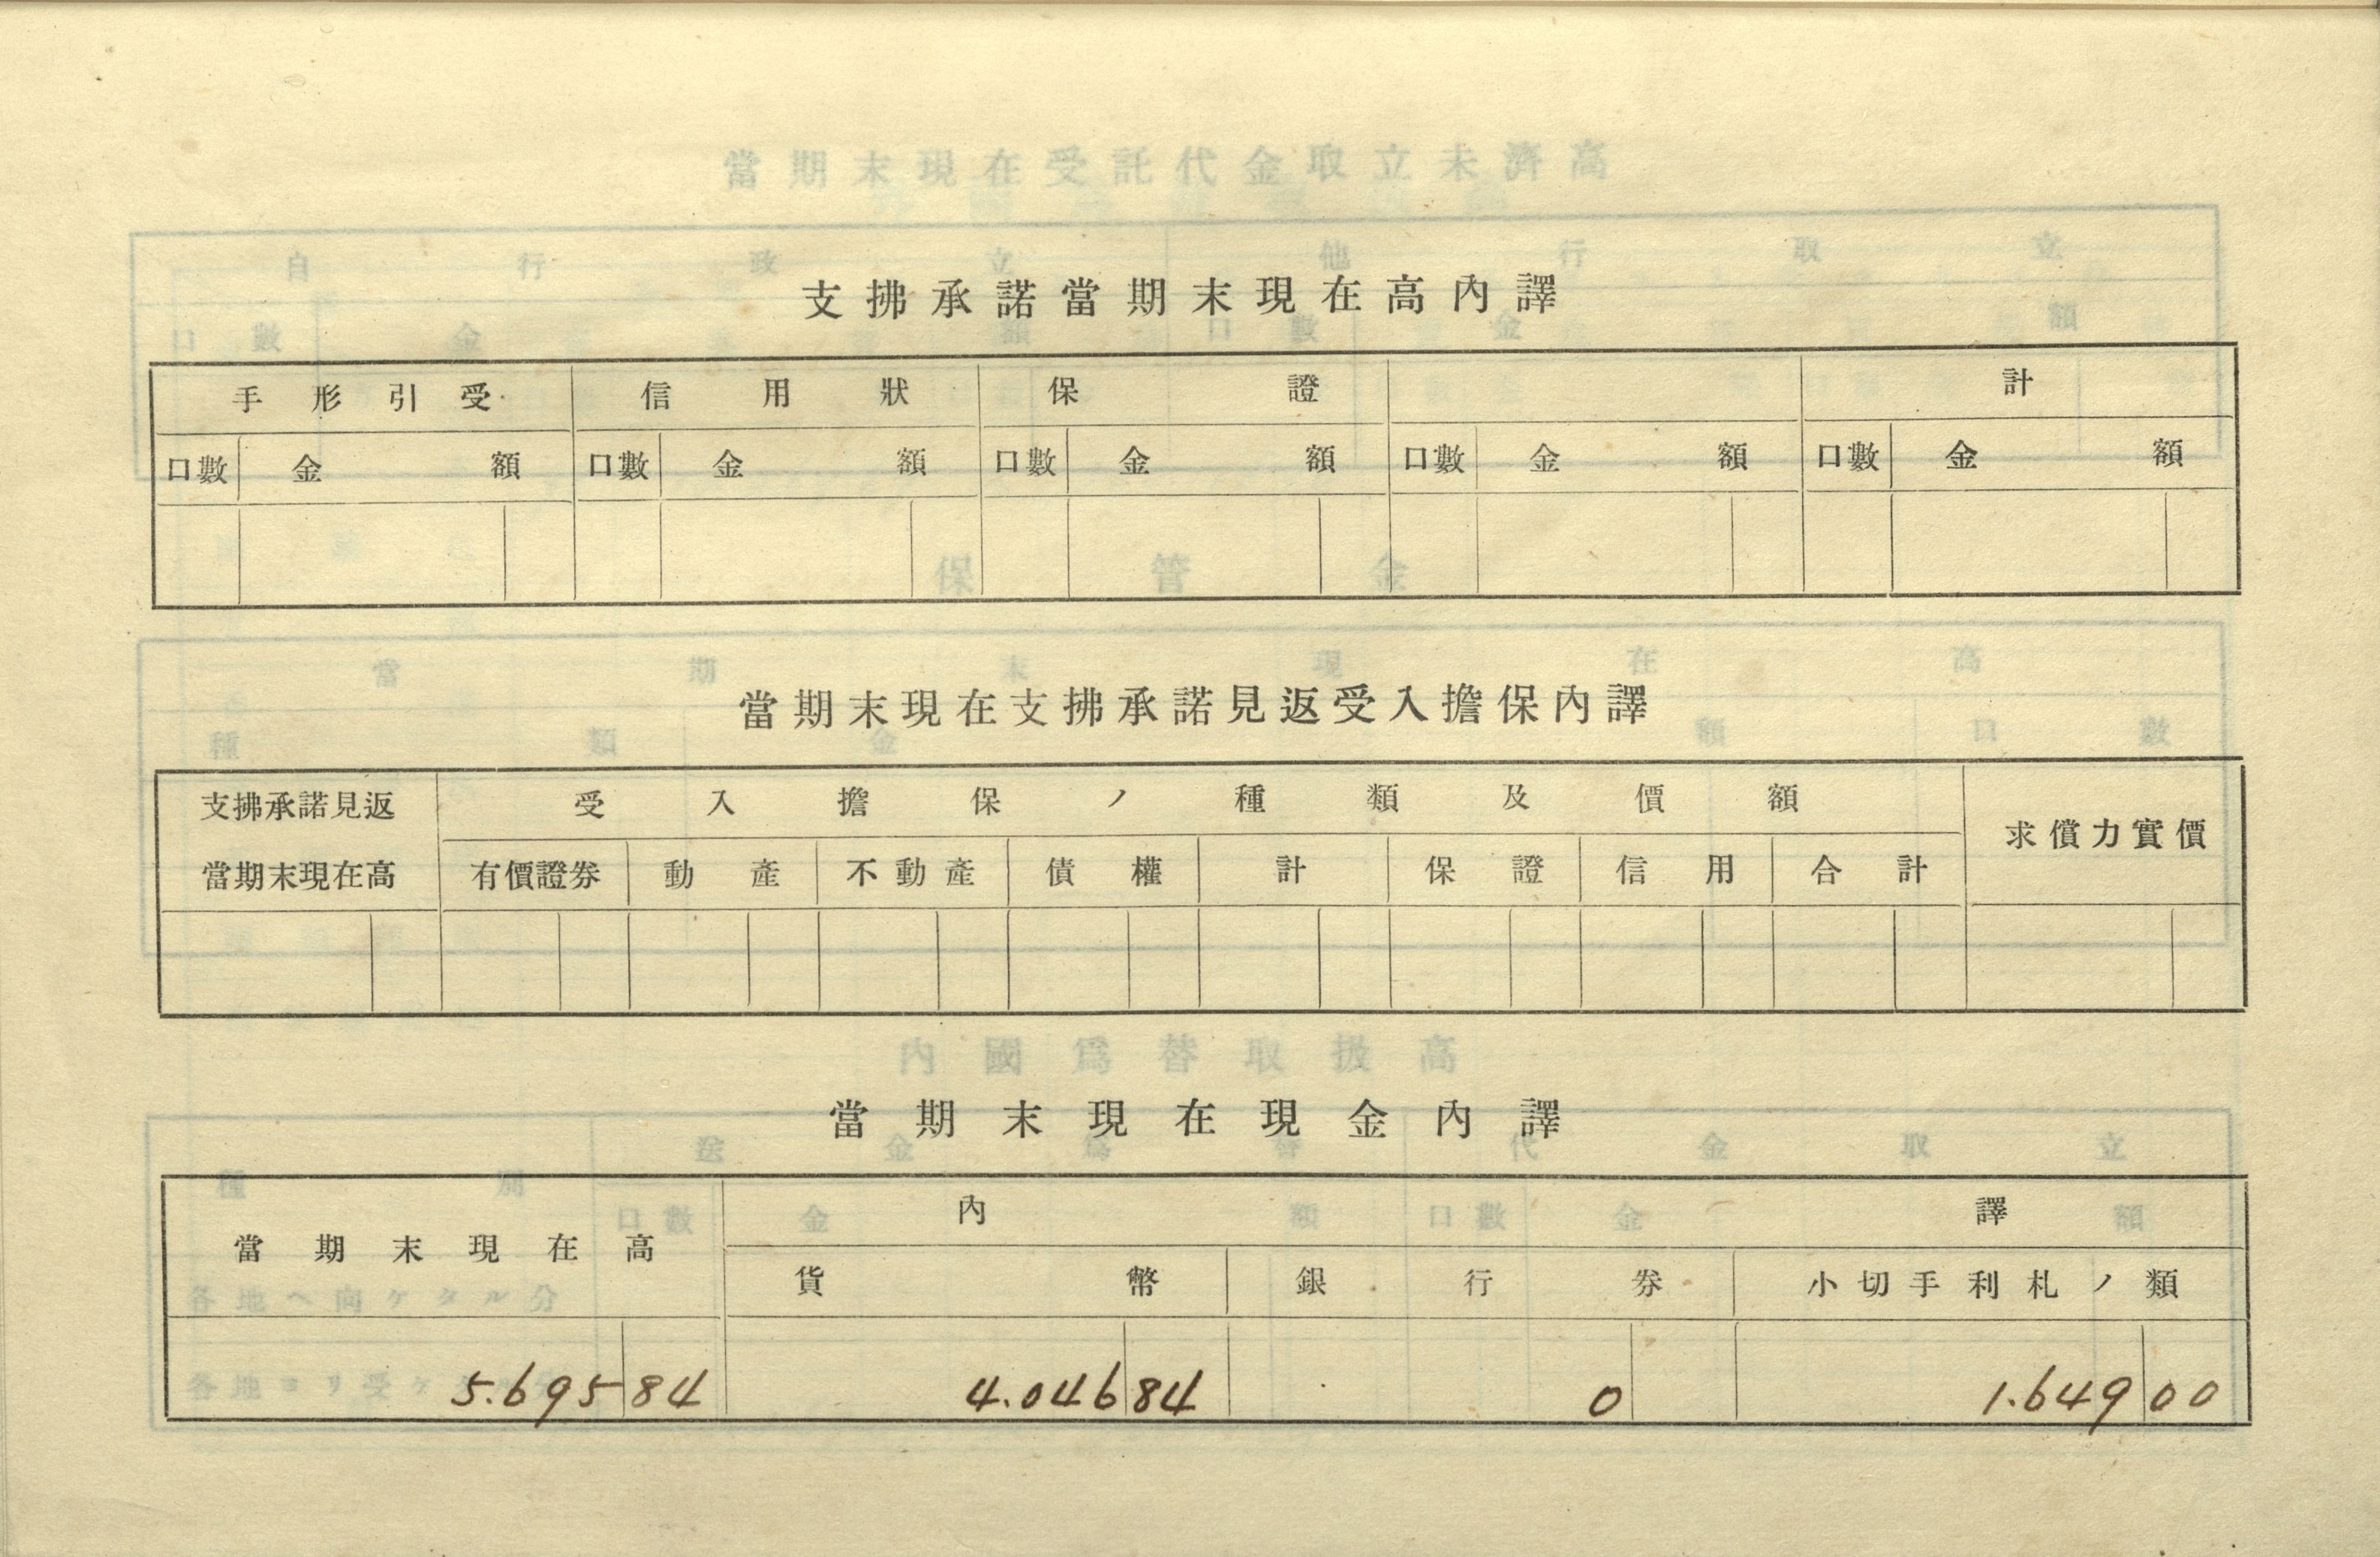 支拂承諾當期末現在高內譯
手形引受 信用狀 保證 計
口數 金額 口數 金額 口數 金額 口數 金額 口數 金額
當期末現在支拂承諾見返受入擔保內譯
支拂承諾見返 受入擔保ノ種類及價額 求償力實價
當期末現在高 有價證券 動產 不動產 債權 計 保證 信用 合計
當期末現在現金內譯
當期末現在高 內譯
貨幣 銀行券 小切手利札ノ類
5.695 84 4.046 84 0 1.649 00